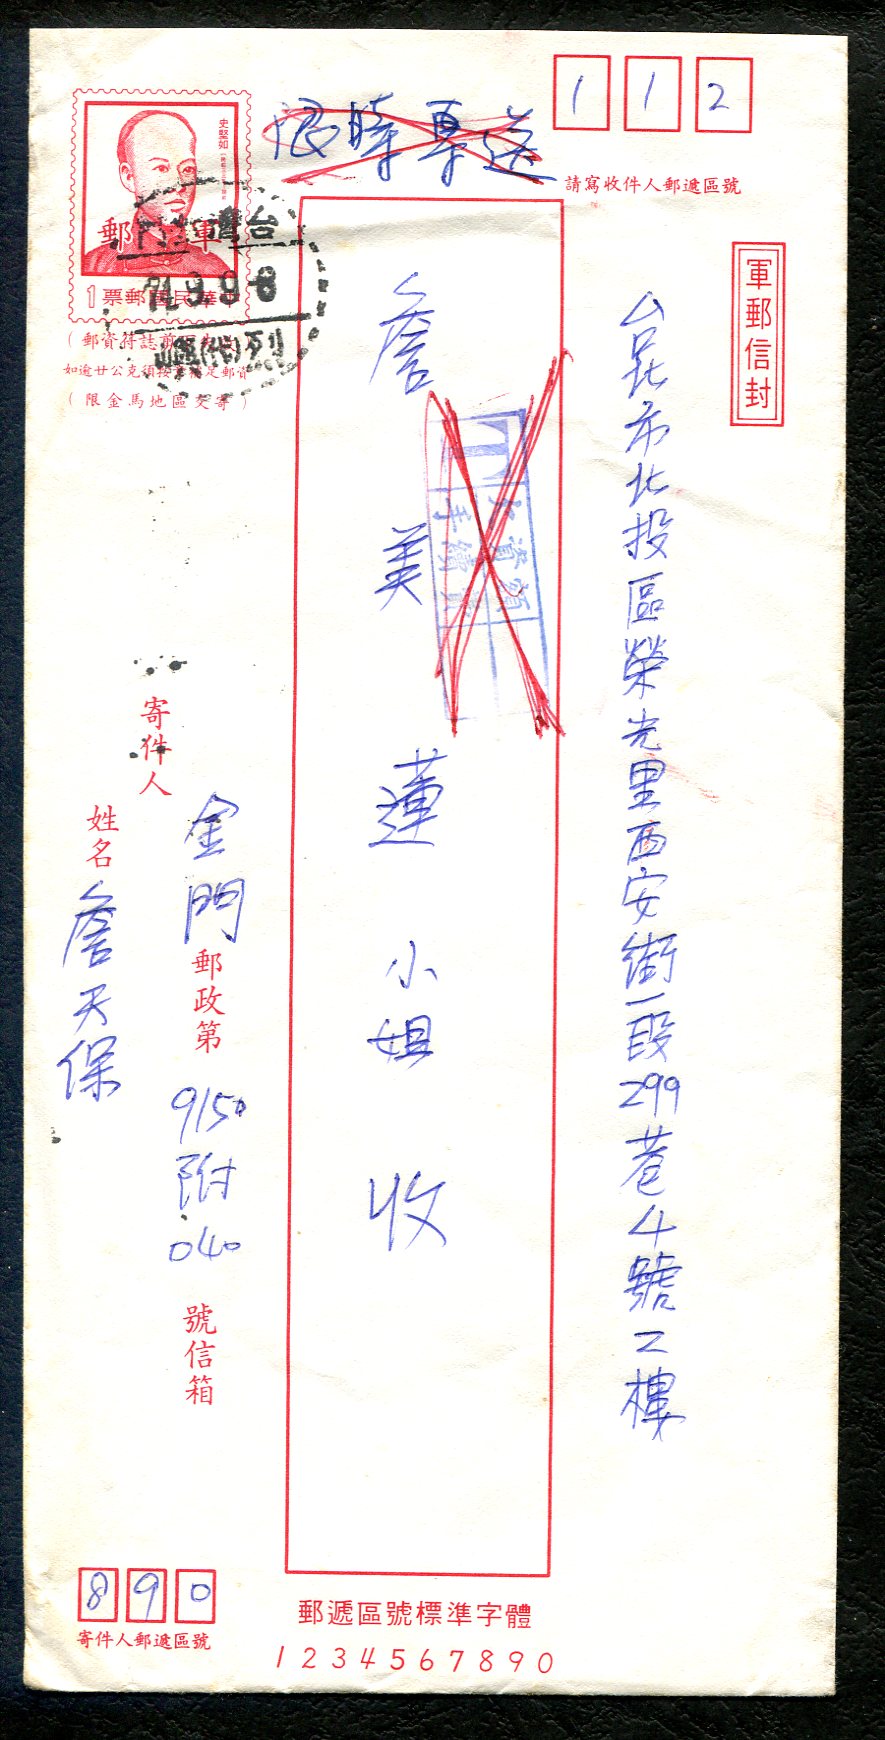 112
請寫收件人郵遞區號
軍郵信封
台北市北投區榮光里西安街一段299巷4號二樓
限時專送
詹美蓮小姐收
欠資
手續費
史堅如
軍郵
中華民國郵票1
台灣
71.9.9-8
郵資符誌
如逾廿公克須按章補足郵資
(限金馬地區交寄)
寄件人
金門郵政第9150附040號信箱
姓名
詹天保
890
寄件人郵遞區號
郵遞區號標準字體
1234567890